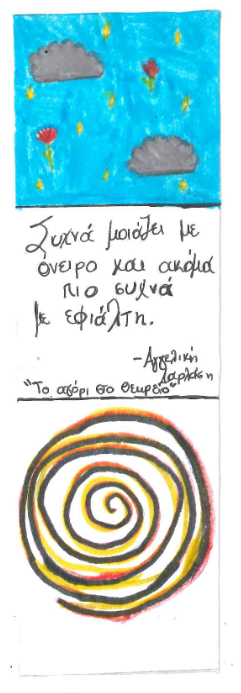 Συχνά μοιάζει με
όνειρο και ακόμα
πιο συχνά
με εφιάλτη.
-Αγγελική
Δαρλάση
"Το αγόρι στο θεωρείο"